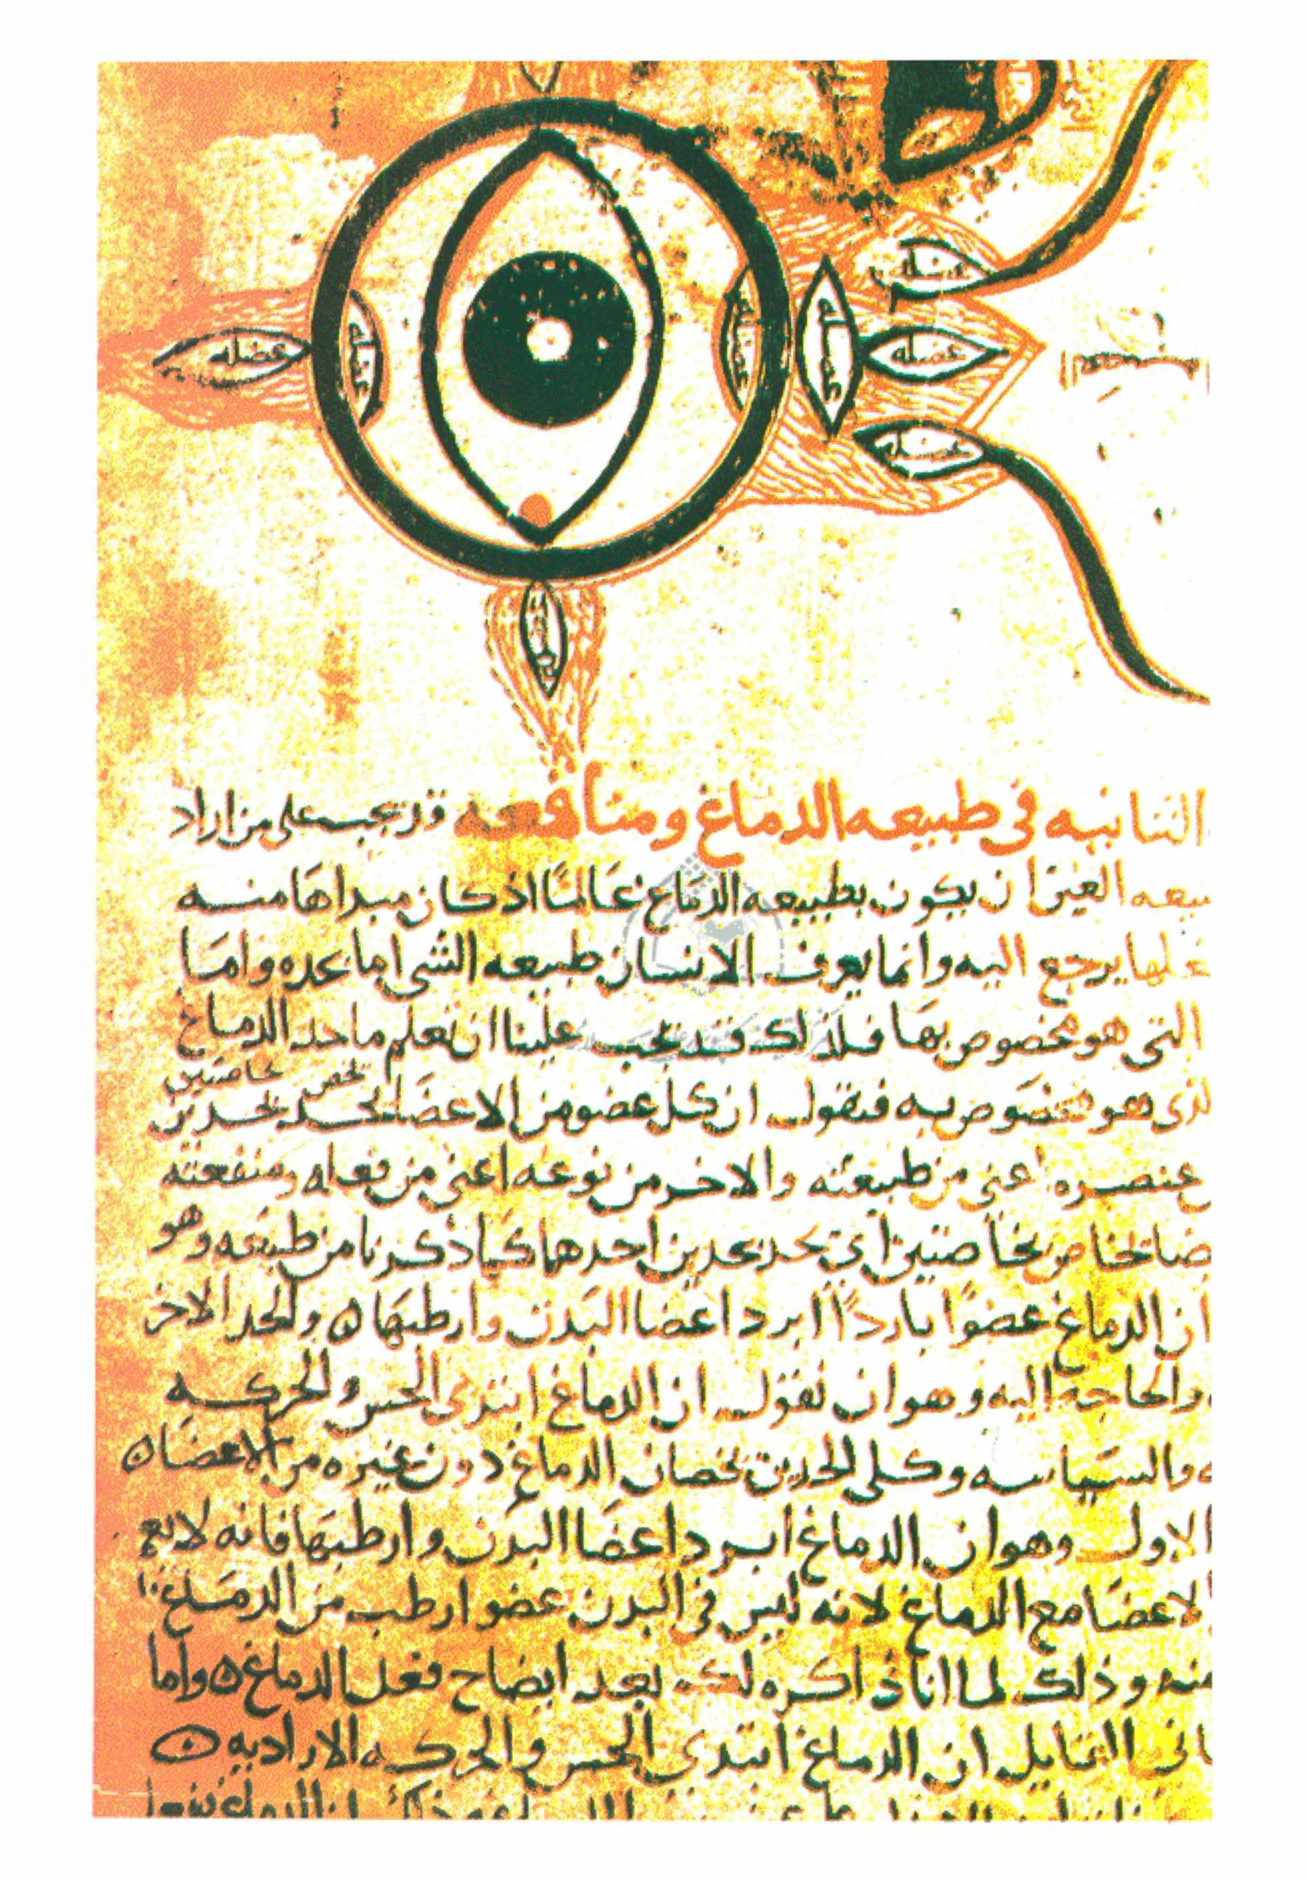 عضله
عضله
عضله
عضله
عضله
عضله
عضله
عضله
الثانيه في طبيعه الدماغ ومنافعه قد يجب على من اراد
العين ان يكون بطبيعه الدماغ عالمًا اذ كان مبداها منه
يرجع اليه وانما يعرف الانسان طبيعه الشي اما بحده واما
التي هو مخصوص بها فلذلك قد يجب علينا ان نعلم ما حد الدماغ
يخص بخاصتين
هو مخصوص به فنقول ان كل عضو من الاعضا يحد بحدين
عنصره اعني من طبيعته والاخر من نوعه اعني من فعله ومنفعته
بخاصتين اي يحد بحدين احدهما كما ذكرنا من طبيعه وهو
ان الدماغ عضوًا باردًا ابرد اعضا البدن وارطبها ه والحد الاخر
والحاجه اليه وهو ان نقول ان الدماغ ابتدى الحس والحركه
والسياسه وكلى الحدين يخصان الدماغ دون غيره من الاعضا ه
الاول وهو ان الدماغ ابرد اعضا البدن وارطبها فانه لا يع
الاعضا مع الدماغ لانه ليس في البدن عضو ارطب من الدماغ
منه وذلك لما انا ذاكره لك بعد ايضاح فعل الدماغ ه واما
القايل ان الدماغ ابتدى الحس والحركه الاراديه ه